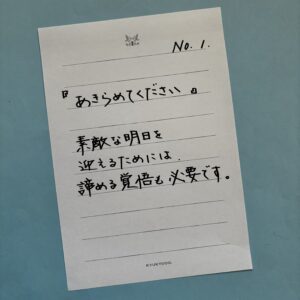 No. 1.
『あきらめてください』
素敵な明日を
迎えるためには、
諦める覚悟も必要です。